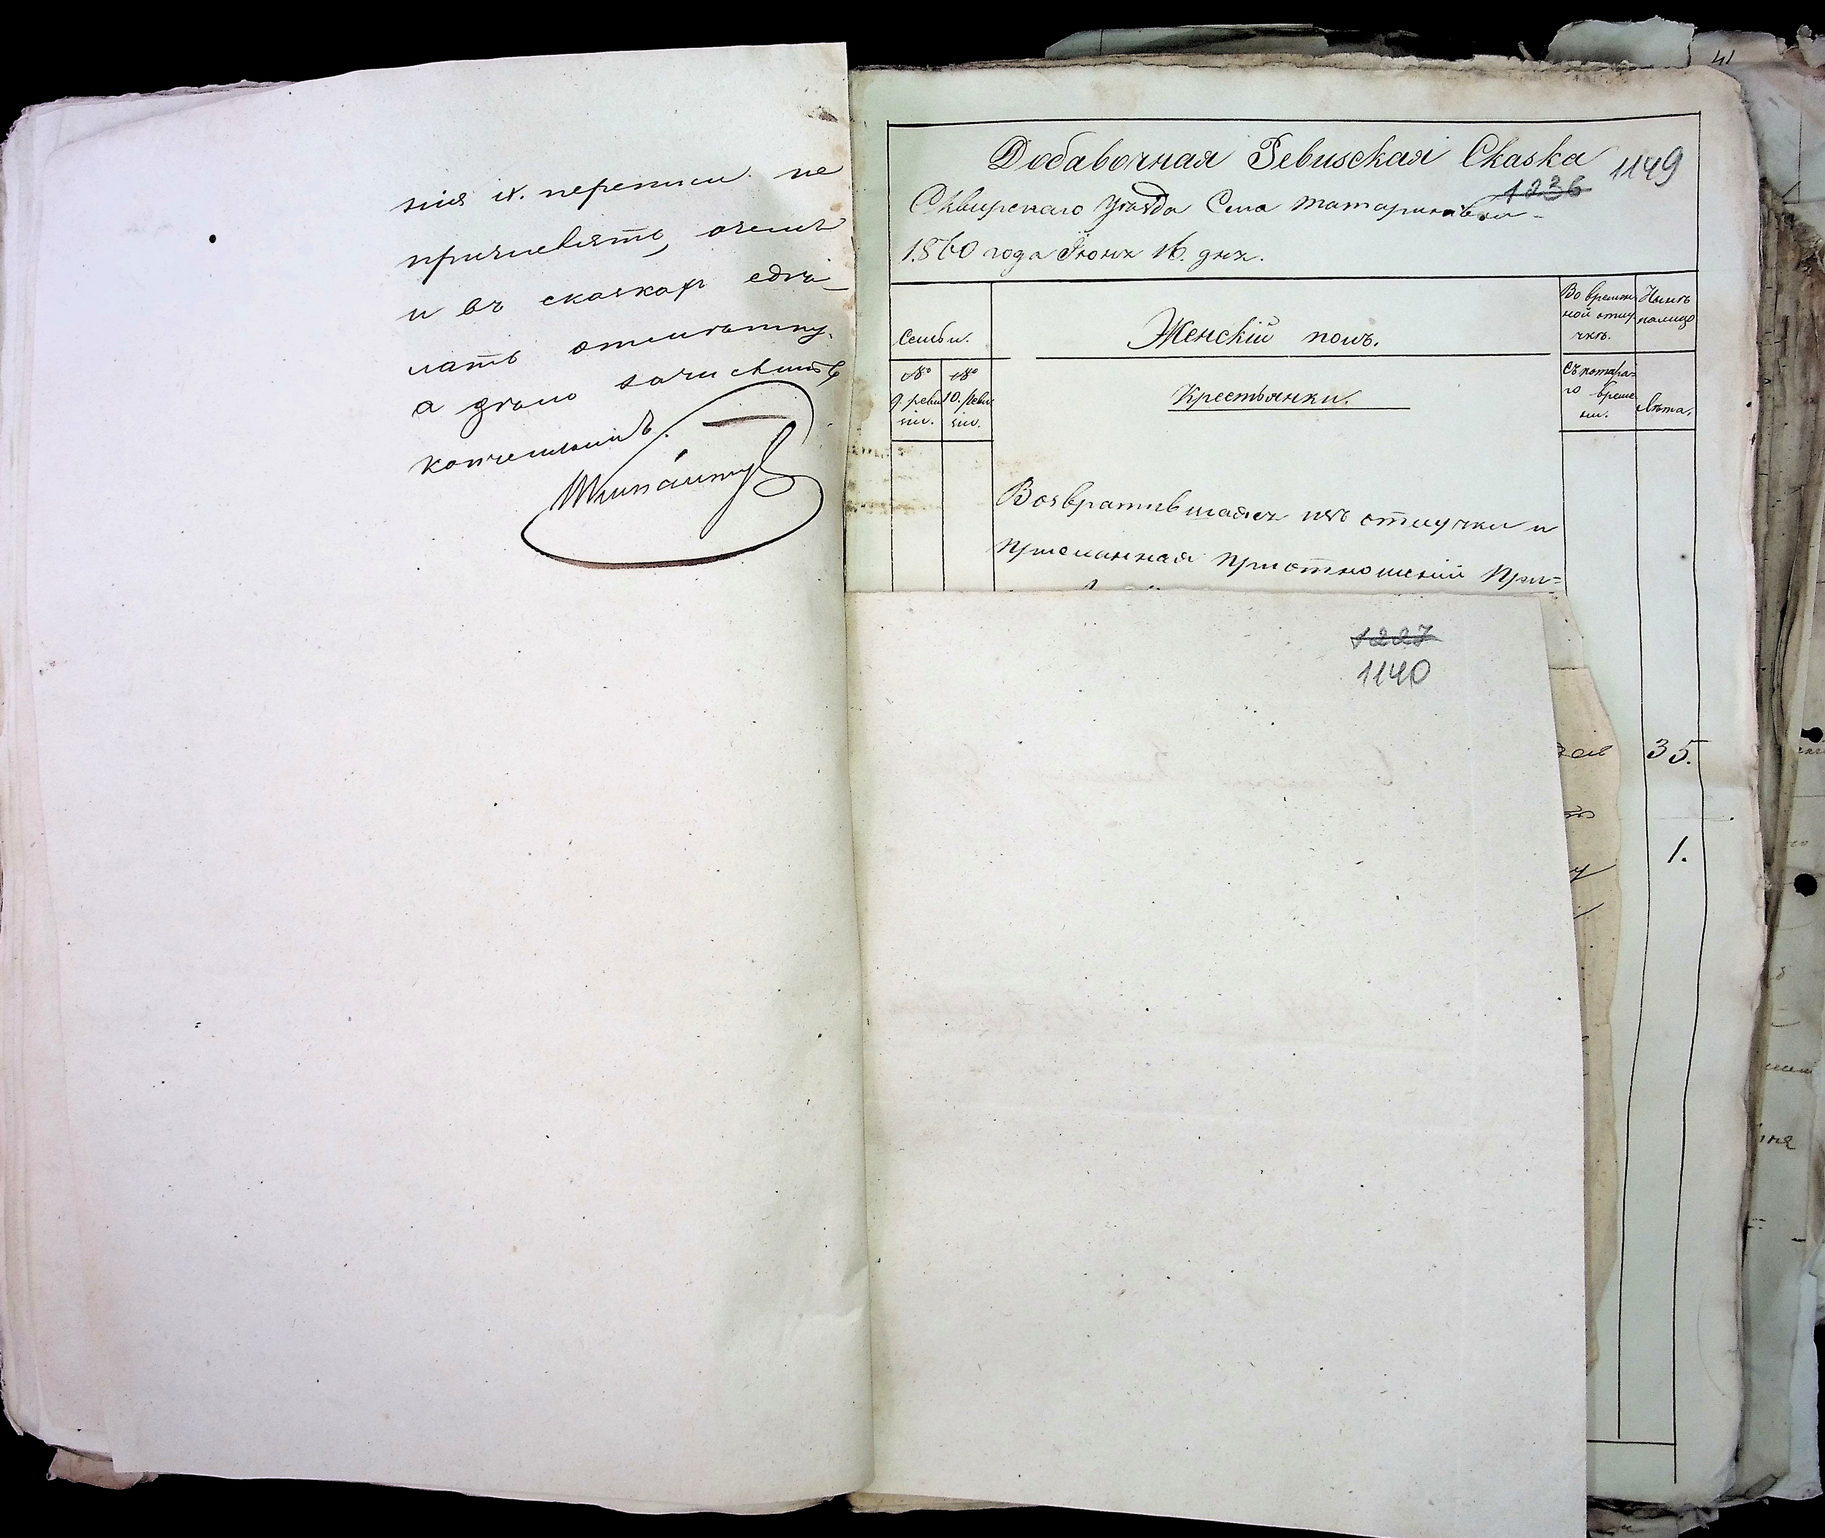 нія ІХ. переписи не
причислять, о чемъ
и въ сказкахъ сдѣ-
лать отмѣтку,
а дѣло зачислить
конченнымъ.
Добавочная Ревизская Сказка
1149
1236
Сквирскаго уѣзда Села Татариновки
1860 года Іюня 16. дня.
Семьи.
Женскій полъ.
Во времен
ной отлу
чкѣ.
Нынѣ
налицо
№
9 реви
зіи.
№
10. реви
зіи.
Крестьянки.
Съ котора-
го време
ни.
Лѣта.
Возвратившаяся изъ отлучки и
Присланная при отношеніи При-
1227
1140
35.
1.